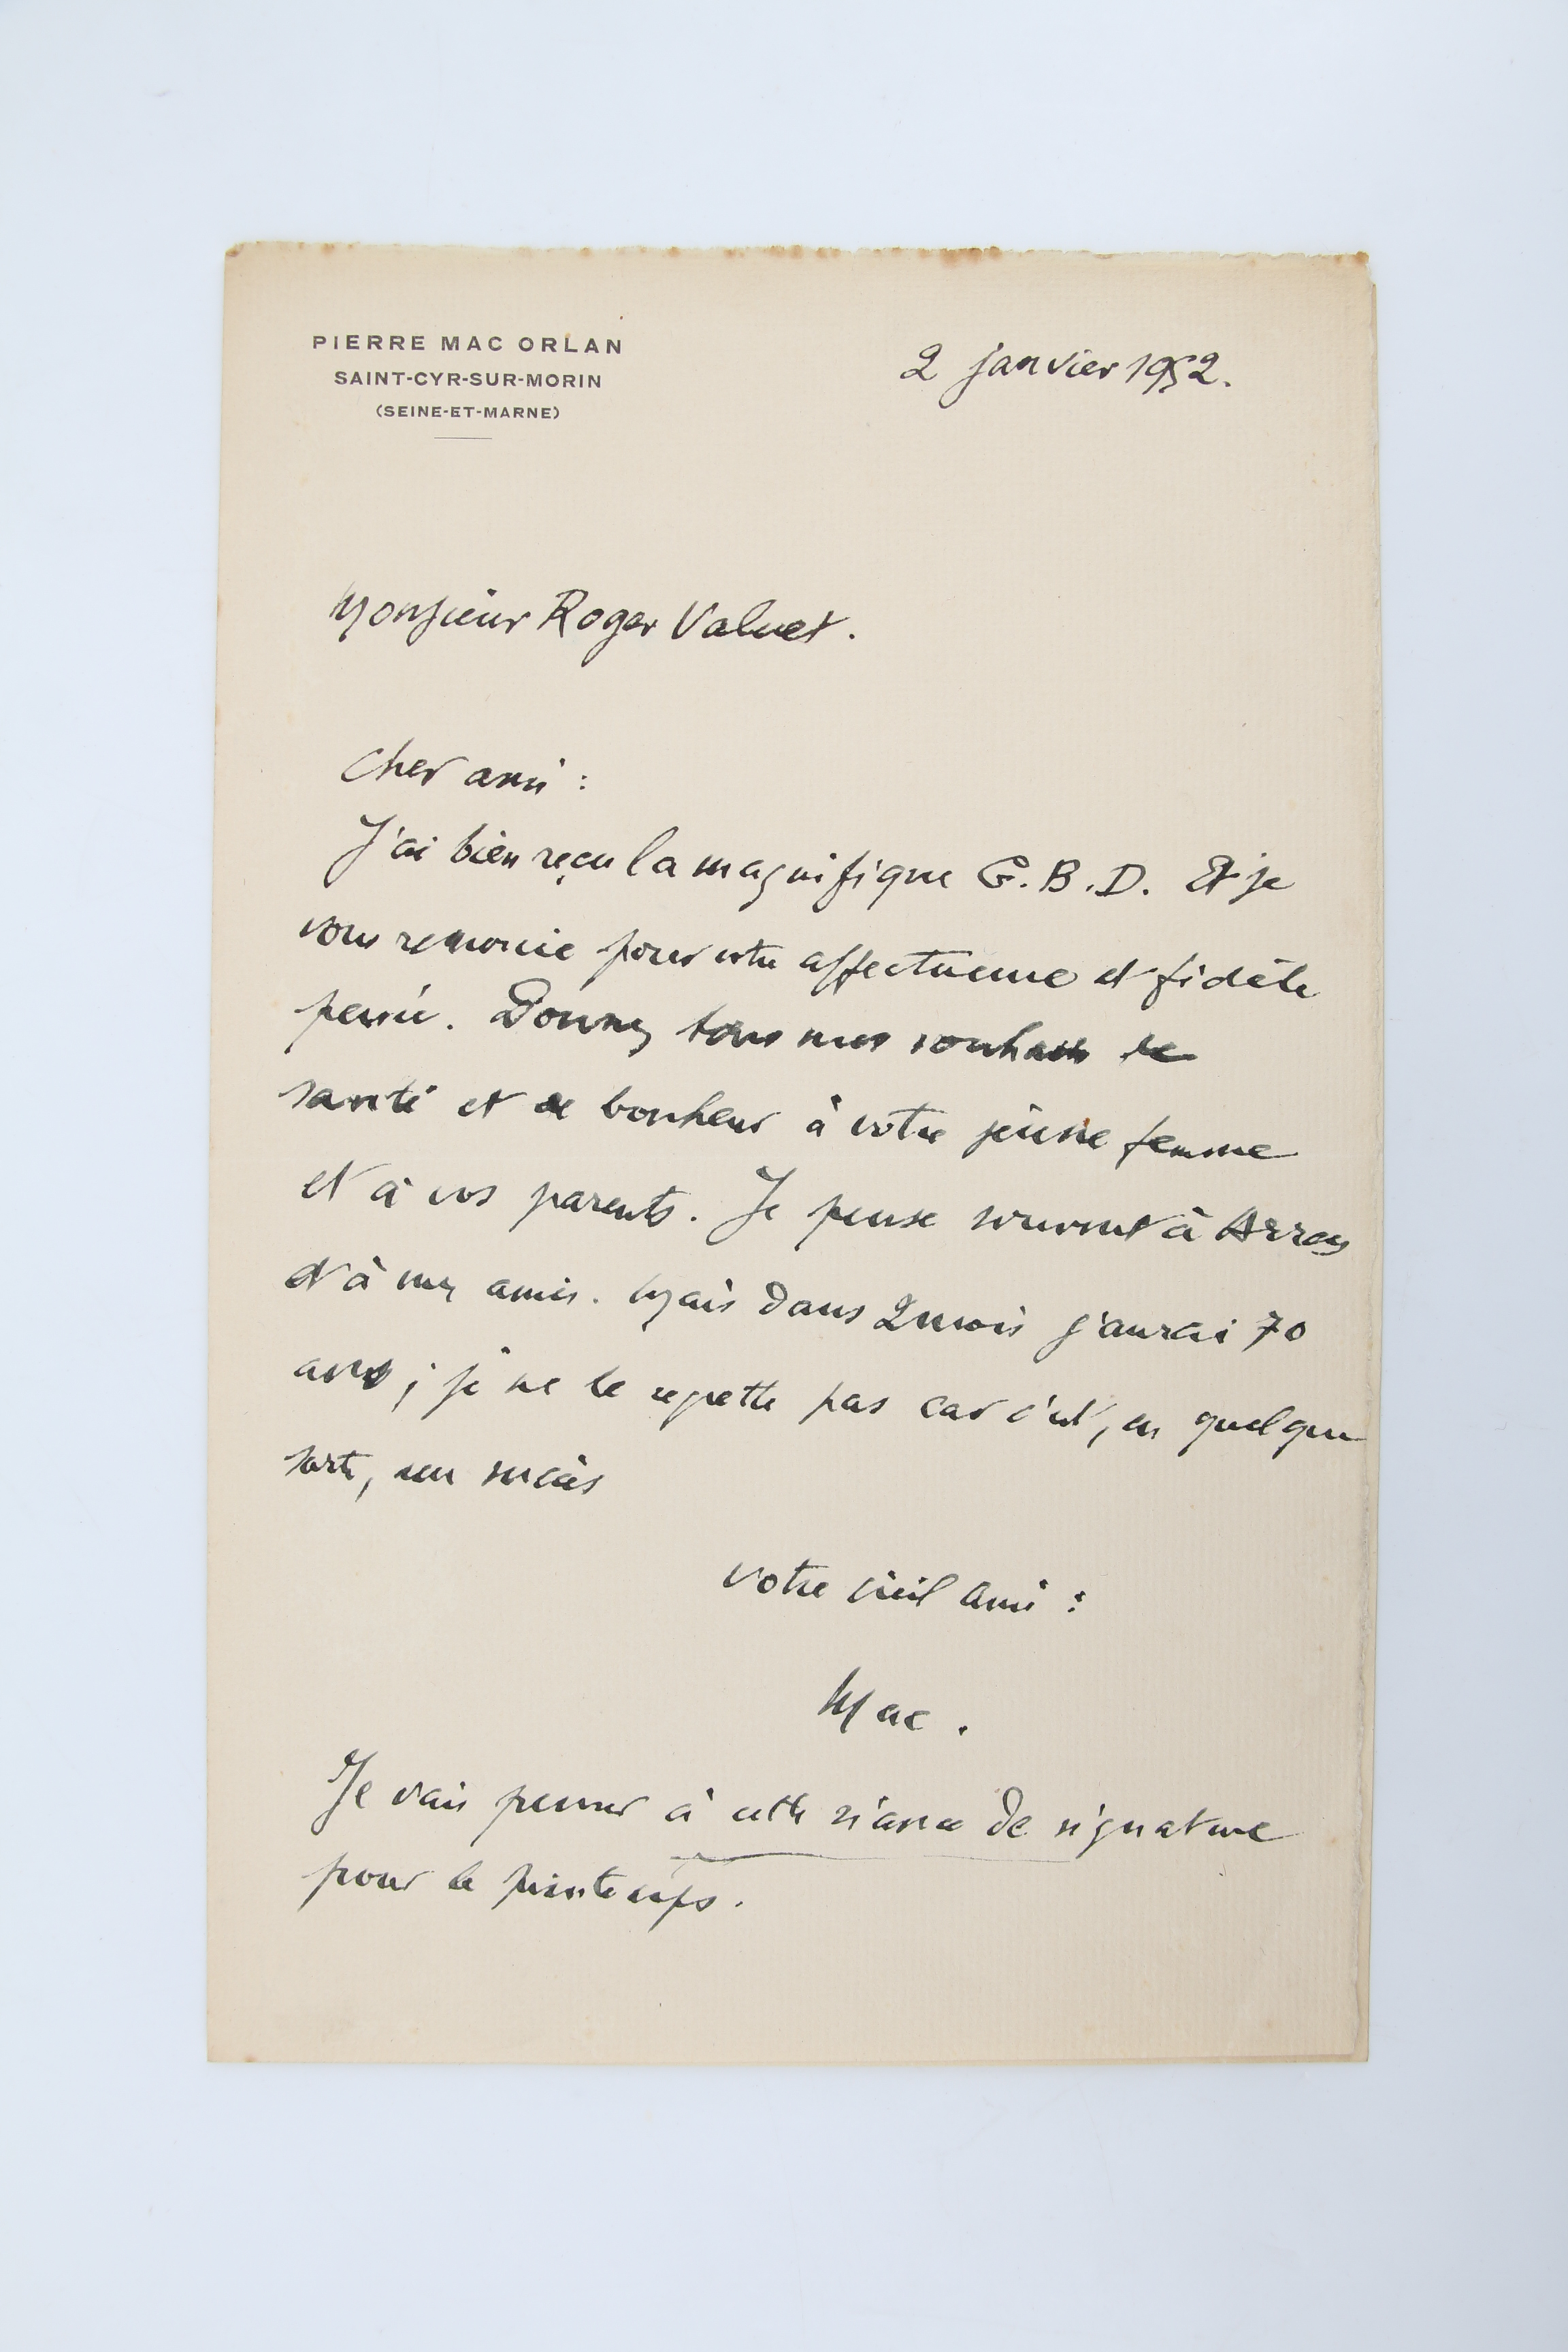 PIERRE MAC ORLAN
SAINT-CYR-SUR-MORIN
(SEINE-ET-MARNE)
2 janvier 1952.
Monsieur Roger Valuet.
Cher ami :
J'ai bien reçu la magnifique G.B.D. Et je
vous remercie pour votre affectueuse et fidèle
pensée. Donnez tous mes souhaits de
santé et de bonheur à votre jeune femme
et à vos parents. Je pense souvent à Arras
et à mes amis. Mais dans 2 mois j'aurai 70
ans ; je ne le regrette pas car c'est, en quelque
sorte, un succès
votre vieil ami :
Mac.
Je vais penser à cette séance de signature
pour le printemps.